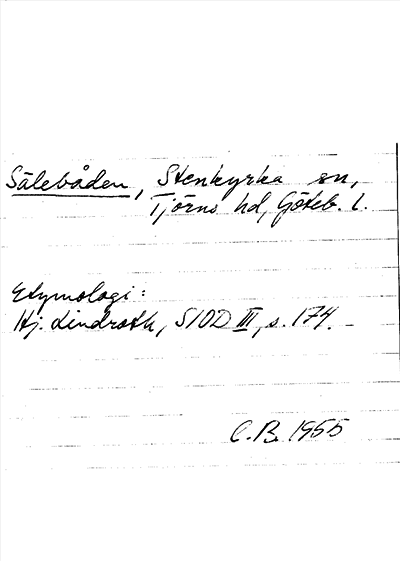 Sälebåden, Stenkyrka sn,
Tjörns hd, Göteb. l.
Etymologi:
Hj. Lindroth, SIOD III, s. 174.
C.B. 1955